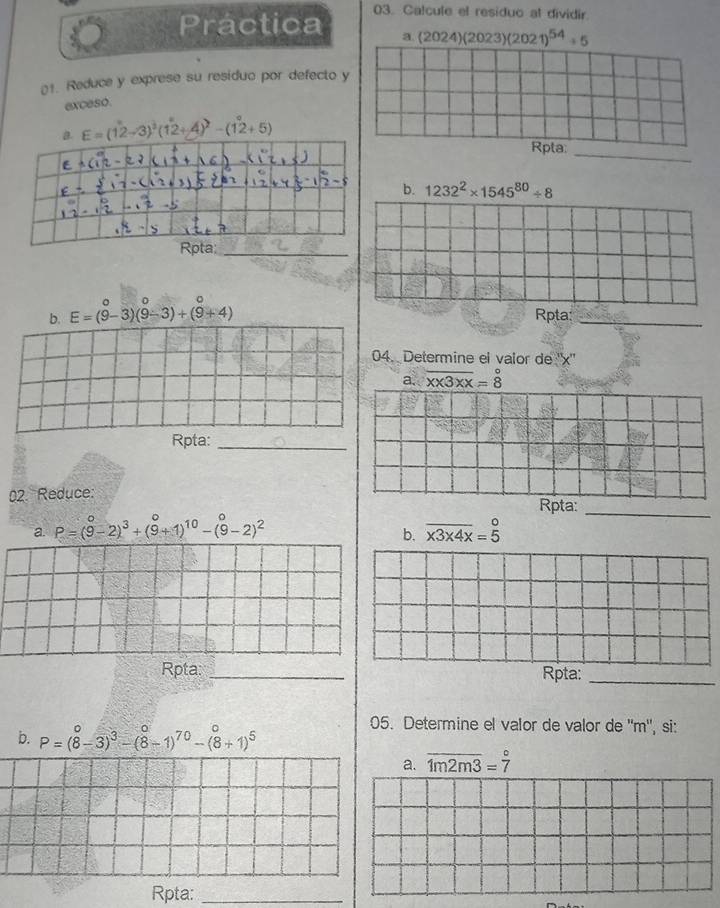 Práctica
01. Reduce y exprese su residuo por defecto y
exceso.
a. E = (12° - 3)³(12° + 4)² - (12° + 5)
12° - 5 12° + 7
Rpta:
b. E = (9° - 3)(9° - 3) + (9° + 4)
Rpta:
02. Reduce:
a. P = (9° - 2)³ + (9° + 1)¹⁰ - (9° - 2)²
Rpta:
b. P = (8° - 3)³ - (8° - 1)⁷⁰ - (8° + 1)⁵
Rpta:
03. Calcule el residuo al dividir
a. (2024)(2023)(2021)⁵⁴ ÷ 5
Rpta:
b. 1232² × 1545⁸⁰ ÷ 8
Rpta:
04. Determine el valor de "x"
a. x̅x̅3̅x̅x̅ = 8°
Rpta:
b. x̅3̅x̅4̅x̅ = 5°
Rpta:
05. Determine el valor de valor de "m", si:
a. 1̅m̅2̅m̅3̅ = 7°
VACACIONAL